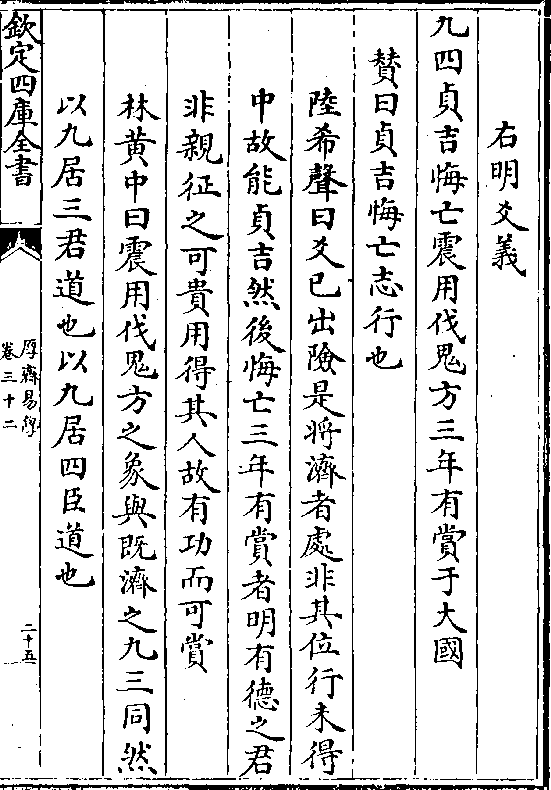 右明爻義
九四貞吉悔亡震用伐鬼方三年有賞于大國
賛曰貞吉悔亡志行也
陸希聲曰爻已出險是將濟者處非其位行未得
中故能貞吉然後悔亡三年有賞者明有德之君
非親征之可貴用得其人故有功而可賞
林黄中曰震用伐鬼方之象與既濟之九三同然
以九居三君道也以九居四臣道也
欽定四庫全書
厚齋易學
卷三十二
二十五